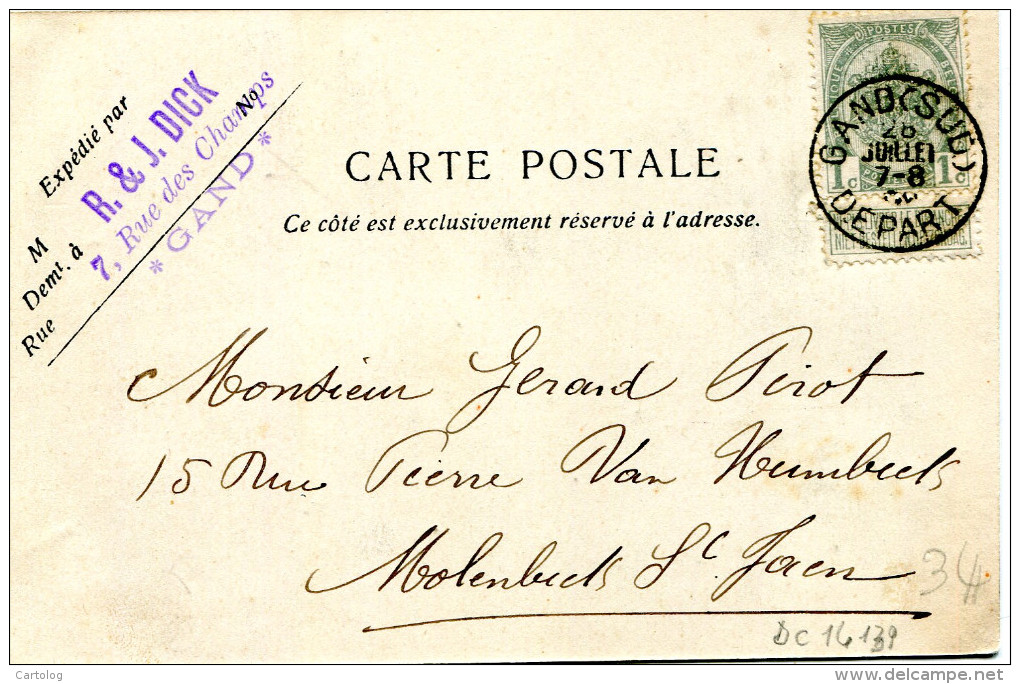 Expédié par
R. & J. DICK
No
7, Rue des Champs
* GAND *
M
Demt. à
Rue
CARTE POSTALE
Ce côté est exclusivement réservé à l'adresse.
POSTES
1c 1c
GAND (SUD)
26
JUILLET
7-8
DEPART
Monsieur Gerard Pirot
15 Rue Pierre Van Humbeek
Molenbeek St Jaen
34
DC 14139
Cartolog
delcampe.net